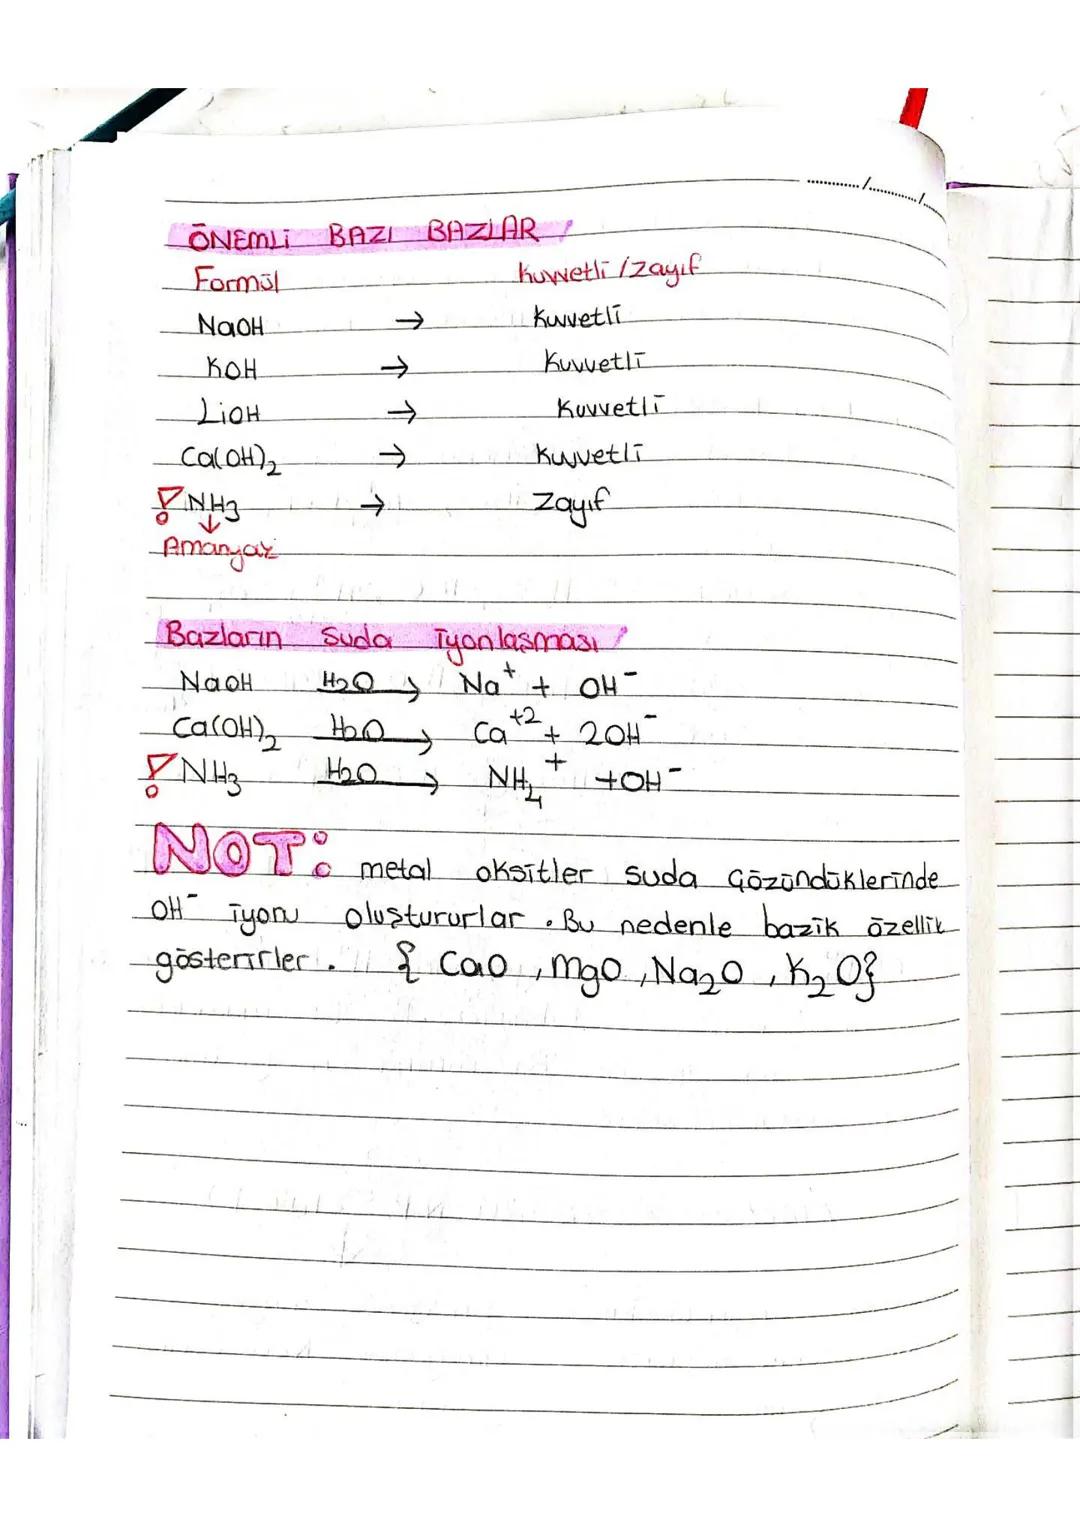 ............/............/...
ÖNEMLİ BAZI BAZLAR
Formül Kuvvetli / Zayıf
NaOH → Kuvvetli
KOH → Kuvvetli
LiOH → Kuvvetli
Ca(OH)₂ → Kuvvetli
! NH₃ → Zayıf
↓
Amonyak
Bazların Suda İyonlaşması
NaOH H₂O→ Na⁺ + OH⁻
Ca(OH)₂ H₂O→ Ca⁺² + 2OH⁻
! NH₃ H₂O→ NH₄⁺ + OH⁻
NOT: metal oksitler suda çözündüklerinde
OH⁻ iyonu oluştururlar. Bu nedenle bazik özellik
gösterirler. { CaO, MgO, Na₂O, K₂O}